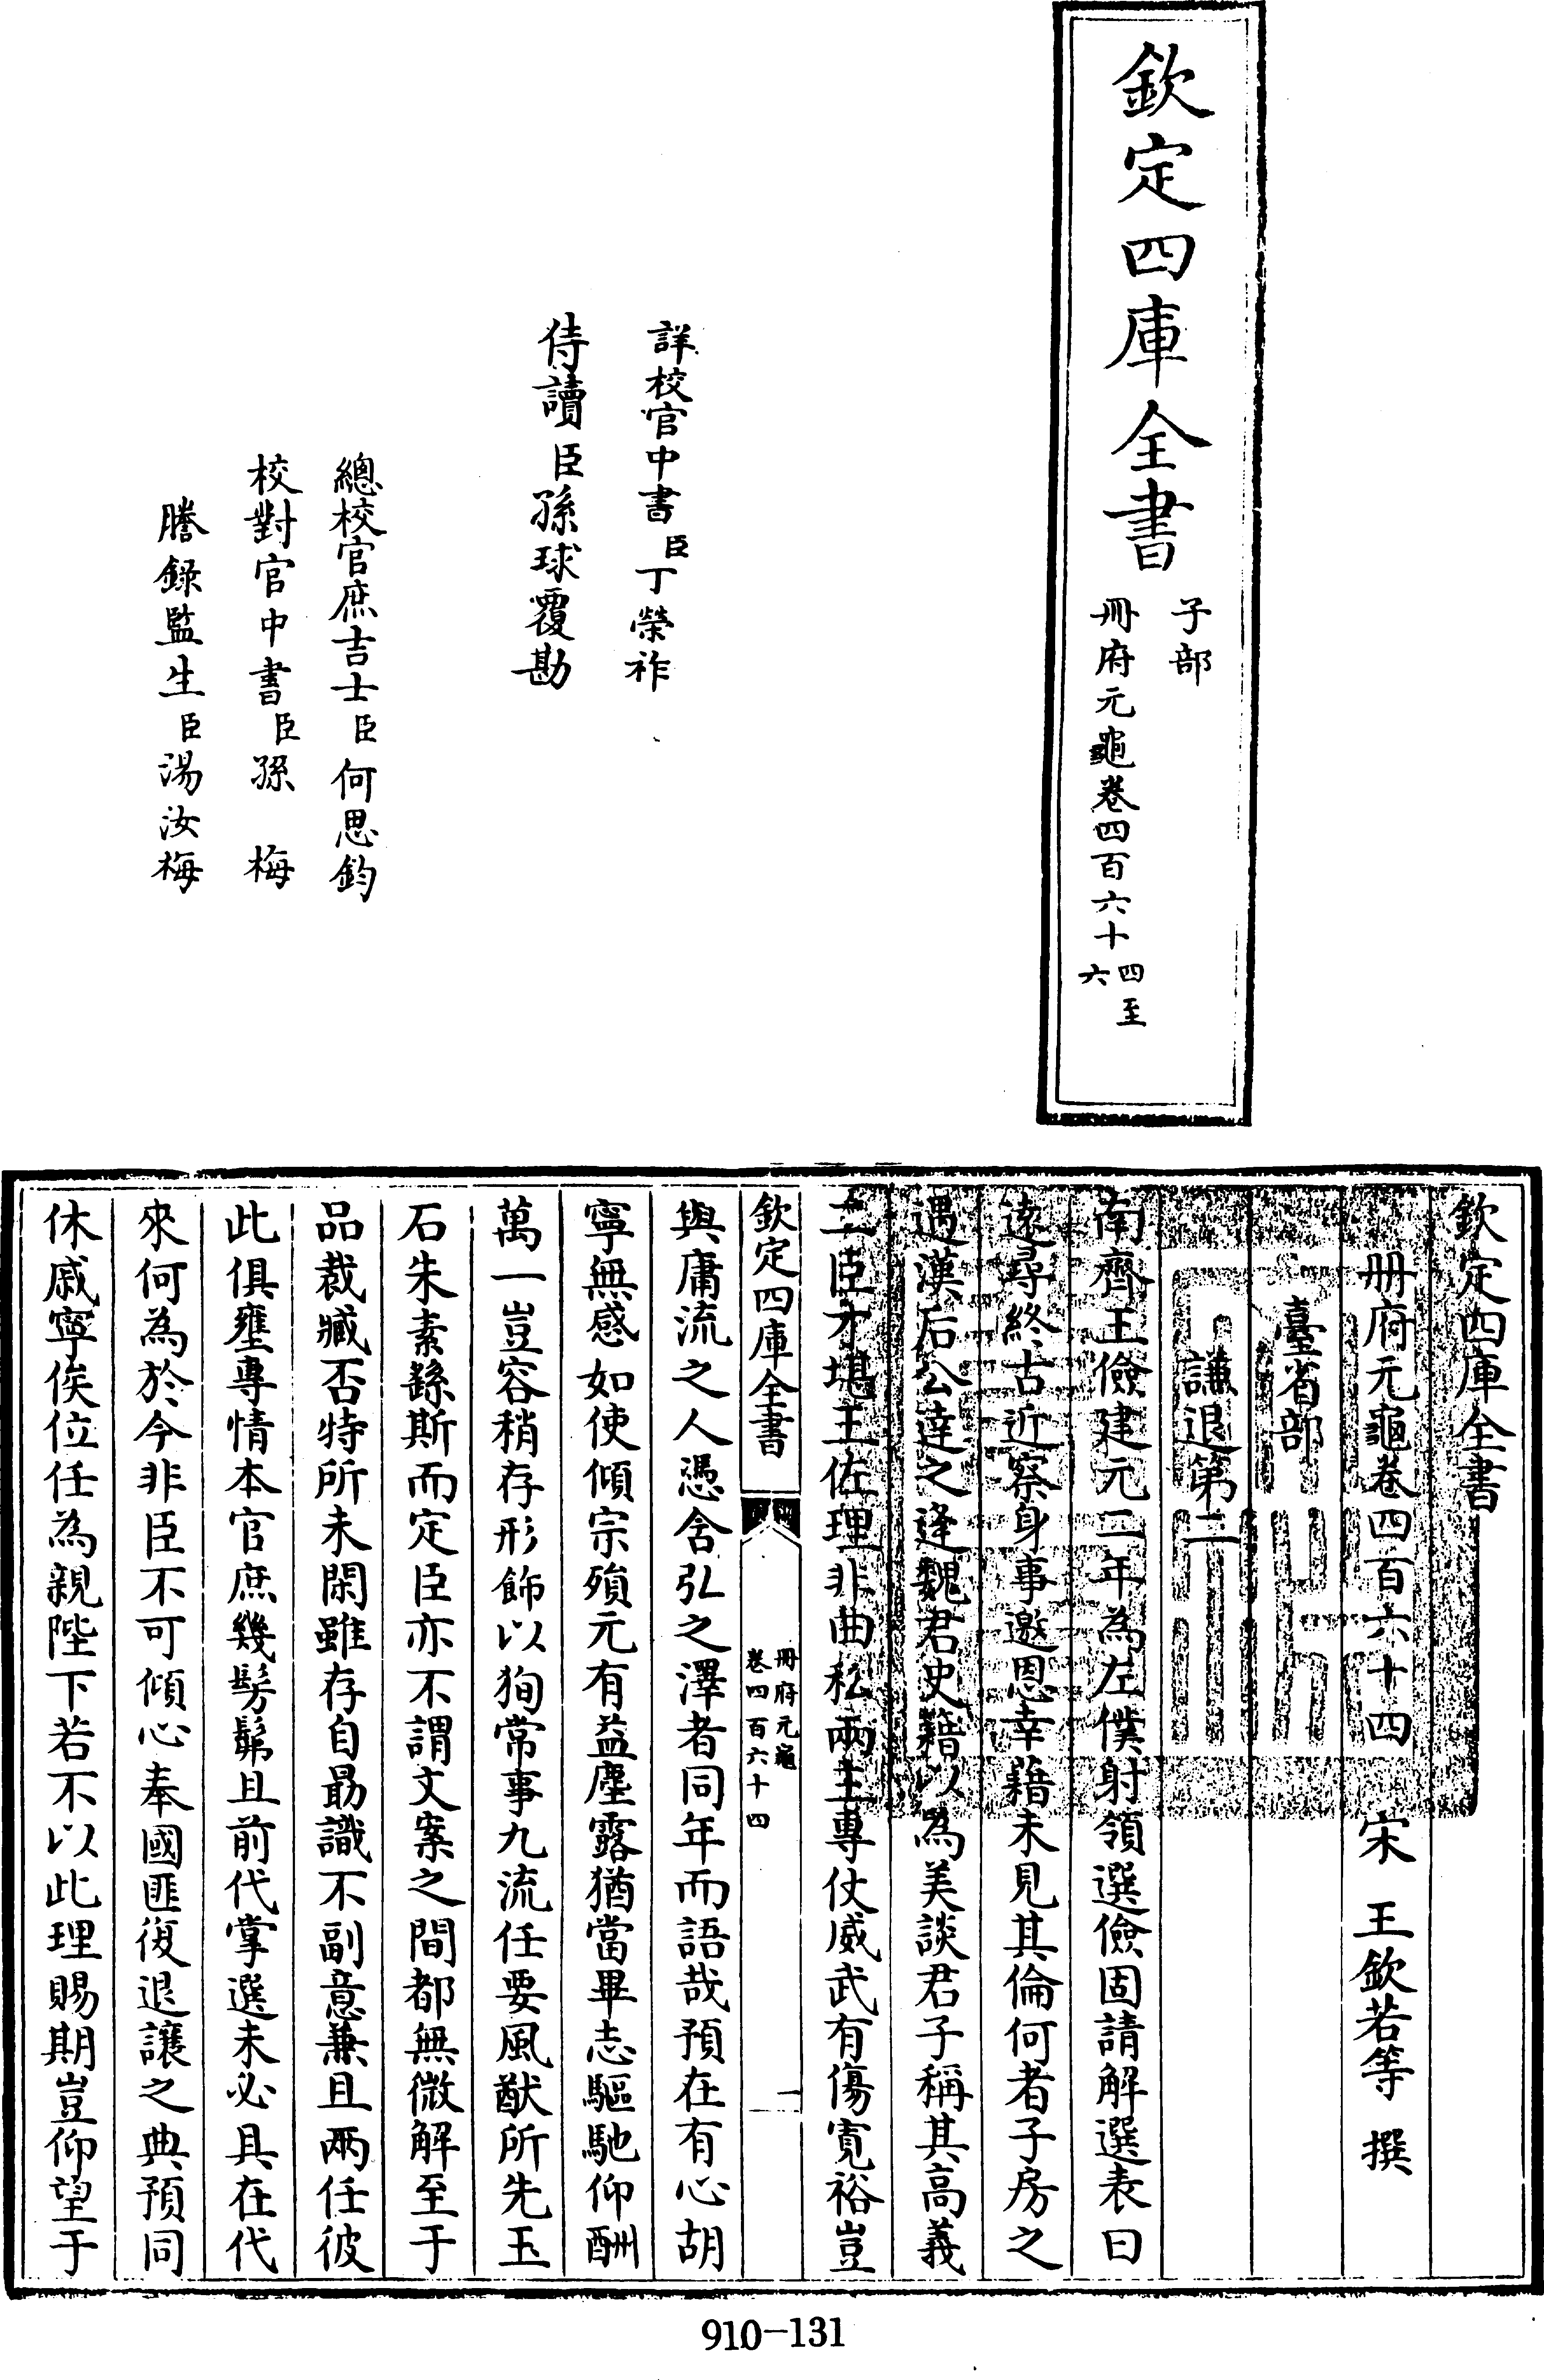 欽定四庫全書
子部
冊府元龜卷四百六十四至六
詳校官中書臣丁榮祚
侍讀臣孫球覆勘
總校官庶吉士臣何思鈞
校對官中書臣孫梅
謄錄監生臣湯汝梅
欽定四庫全書
冊府元龜卷四百六十四 宋 王欽若等 撰
臺省部
謙退第二
南齊王儉建元二年為左僕射領選儉固請解選表曰
遠尋終古近察身事邀恩幸藉未見其倫何者子房之
遇漢后公達之逢魏君史籍以為美談君子稱其高義
二臣才堪王佐理非曲私兩主專仗威武有傷寛裕豈
欽定四庫全書
冊府元龜
卷四百六十四
一
與庸流之人憑含弘之澤者同年而語哉預在有心胡
寧無感如使傾宗殞元有益塵露猶當畢志驅馳仰酬
萬一豈容稍存形飾以狥常事九流任要風猷所先玉
石朱素繇斯而定臣亦不謂文案之間都無微解至于
品裁臧否特所未閑雖存自勗識不副意兼且兩任彼
此俱壅專情本官庶幾髣髴且前代掌選未必具在代
來何為於今非臣不可傾心奉國匪復退讓之典預同
休戚寧俟位任為親陛下若不以此理賜期豈仰望于
910-131